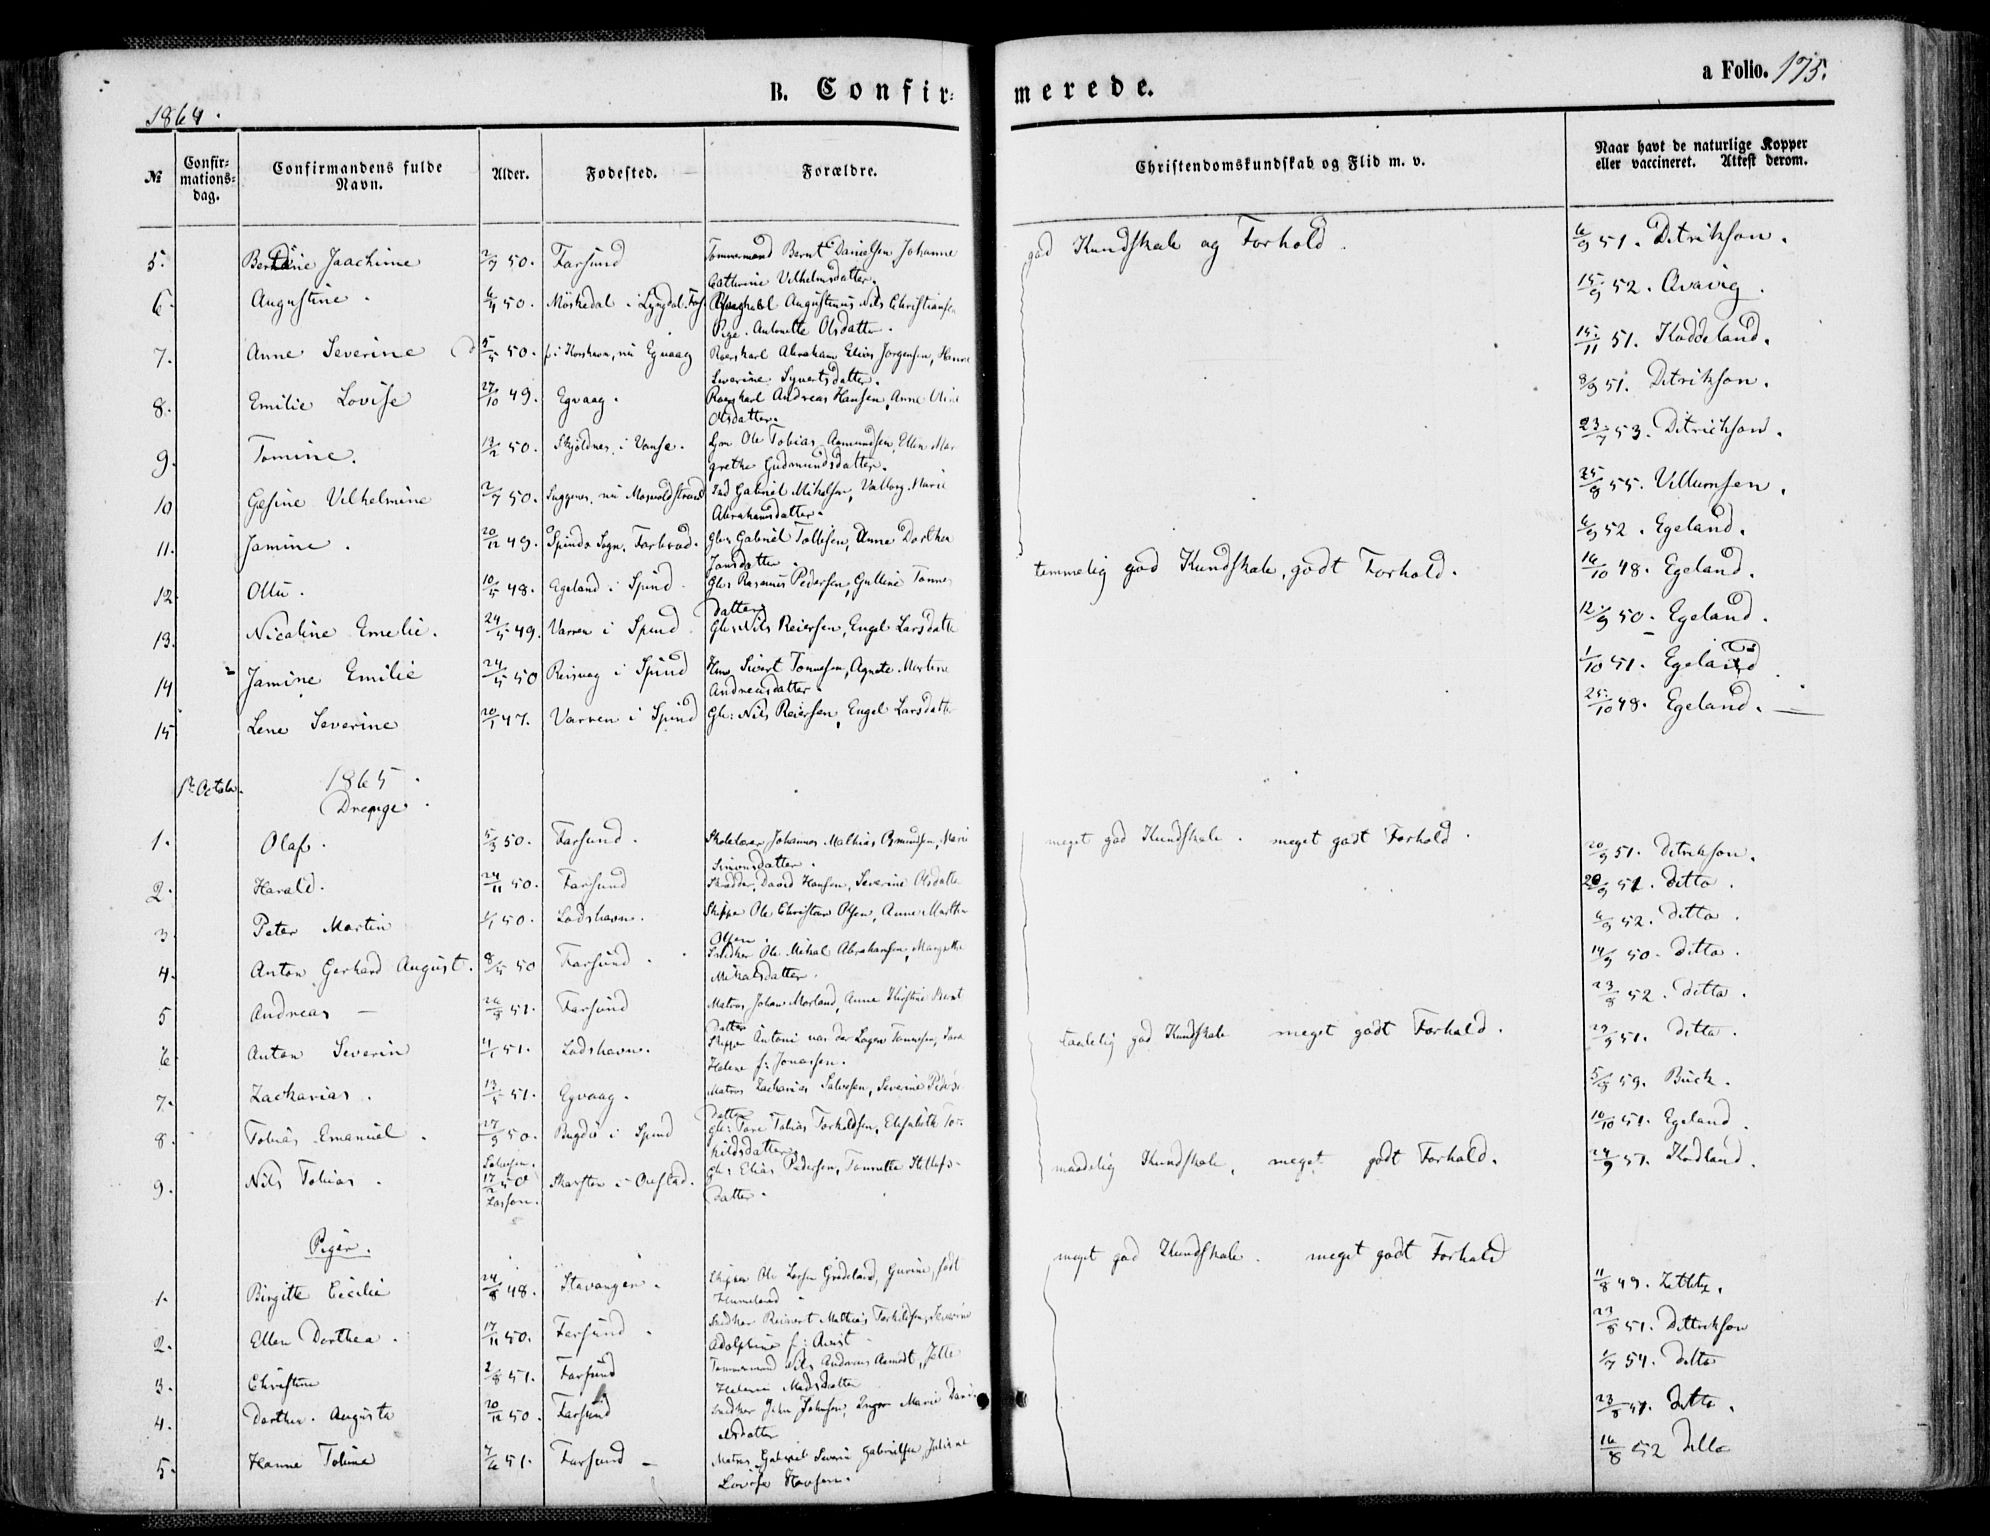 B. Confir= merede.
a Folio. 175.
1864.
№ Confir=mations=dag. Confirmandens fulde Navn. Alder. Fødested. Forældre. Christendomskundskab og Flid m. v. Naar havt de naturlige Kopper eller vaccineret. Attest derom.
5. Jaachime 2/7 50. Farsund Tømmermand Bernt Danielsen Johanne god Kundskab og Forhold. 6/9 51. Ditrikson.
Cathrine Vilhelmsdatter.
6. Augustine. 6/4 50. Möskedal i Lyngdal. Augustinus Nils Christiansen 15/9 52. Qvavig.
Pige. Antonette Olsdatter.
7. Anne Severine 5/5 50. f. i Korshavn, nu Egvaag Abraham Elias Jørgensen, Hanne 15/11 51. Haddeland.
Severine Syvertsdatter.
8. Emilie Lovise 27/10 49. Egvaag. Andreas Hansen, Anne 8/9 51. Ditrikson.
Olsdatter.
9. Tomine. 19/2 50. Skjöldnes i Vanse. Ole Tobias Aamundsen, Ellen Mar 23/7 53. Ditrichson.
grethe Gudmundsdatter.
10 Gesine Vilhelmine 2/7 50. nu Mosvoldstrand Gabriel Mikelsen, Marie 25/8 55. Villumsen.
Abrahamsdatter.
11. Jamine. 20/12 49. Spinds Sogn, Gbr Gabriel Tollefsen, Anne Dorthea 6/9 52. Egeland.
Jansdatter
12 Olli. 10/5 48. Egeland i Spind. Gbr Rasmus Pedersen, Gulline Tønnes temmelig god Kundskab, godt Forhold. 16/10 48. Egeland.
datter
13. Nicoline Emelie. 24/5 49. Varnen i Spind. Gbr: Nils Reiersen, Engel Larsdatter 12/9 50. Egeland.
14 Jamine Emilie 24/5 50 Reisvaag i Spind Hmd Sivert Tønnesen, Agnete Martine 1/10 51. Egeland
Andreasdatter.
15 Lene Severine 20/1 47. Varnen i Spind Gbr: Nils Reiersen, Engel Larsdatter 25/10 48. Egeland.
1ste Octobr. 1865.
Drenge.
1. Olaf. 5/3 50. Farsund. Skolelærer Johannes Mathias Osmundsen, Marie meget god Kundskab. meget godt Forhold. 20/9 51. Ditrikson.
Simonsdatter.
2. Harald. 24/11 50. Farsund Skrædder, David Hansen, Severine Olsdatter 20/9 51. ditto.
3. Peter Martin 4/1 50. Lodshavn. Skipper Ole Christian Olsen, Anne Marthe 6/9 52. ditto.
Olsen.
4. Anton Gerhard August. 8/5 50 Farsund. Snedker Ole Mikal Abrahamsen, Margrethe 14/9 50. ditto.
Mikalsdatter.
5 Andreas — 26/3 51. Farsund Matros Johan Morland, Anne Kirstine Bernt 23/8 52. ditto.
datter
6 Anton Severin 11/1 51. Lodshavn. Skipper Antoni van der Lagen Tønnesen, Sara taalelig god Kundskab meget godt Forhold. 29/9 51. ditto.
Helene f: Jonassen.
7. Zacharias. 13/5 51. Egvaag. Matros Zacharias Salvesen, Severine Peders 5/9 59. Buck.
datter
8. Tobias Emanuel. 27/3 50. Bugdø i Spind Gbr: Tore Tobias Torkeldsen, Elisabeth Tor= 10/10 51. Egeland.
kildsdatter.
9. Nils Tobias. 17/2 50 Skarstein i Gbr Elias Pedersen, Tonnette maadelig Kundskab, meget godt Forhold. 24/9 57. Kodland.
datter.
Piger.
1. Birgitte Cecilie 24/8 48. Stavanger. Skipper Ole Larsen Grødeland, Gurine, født meget god Kundskab. meget godt Forhold 11/8 49.
Hummeland
2. Ellen Dorthea. 17/11 50. Farsund. Snedker Reinert Mathias Torkildsen, Severine 23/8 51. Dittrikson
Adolphine f:
3. Christine 2/8 51. Farsund Tømmermand Nils Andreas Aamodt, Jelle 1/7 54. ditto
Helene Madsdatter
4. Dorthea Augusta 20/12 50. Farsund Snedker John Johnsen, Inger Marie Dani 23/8 51. ditto.
elsdatter
5. Hanne Toline 7/6 51. Farsund — Matros Gabriel Severin Gabrielsen, Juliane 16/8 52 ditto
Lovise Hansen.